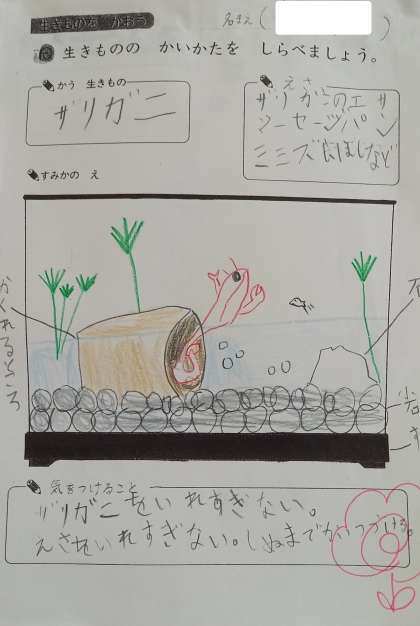 生きものを かおう
名まえ( )
生きものの かいかたを しらべましょう。
かう 生きもの
ザリガニ
えさ
ザリガニのエサ
ソーセージパン
ミミズにぼしなど
すみかの え
かくれるところ
気をつけること
ザリガニをいれすぎない。
えさをいれすぎない。しぬまでかいつづける。